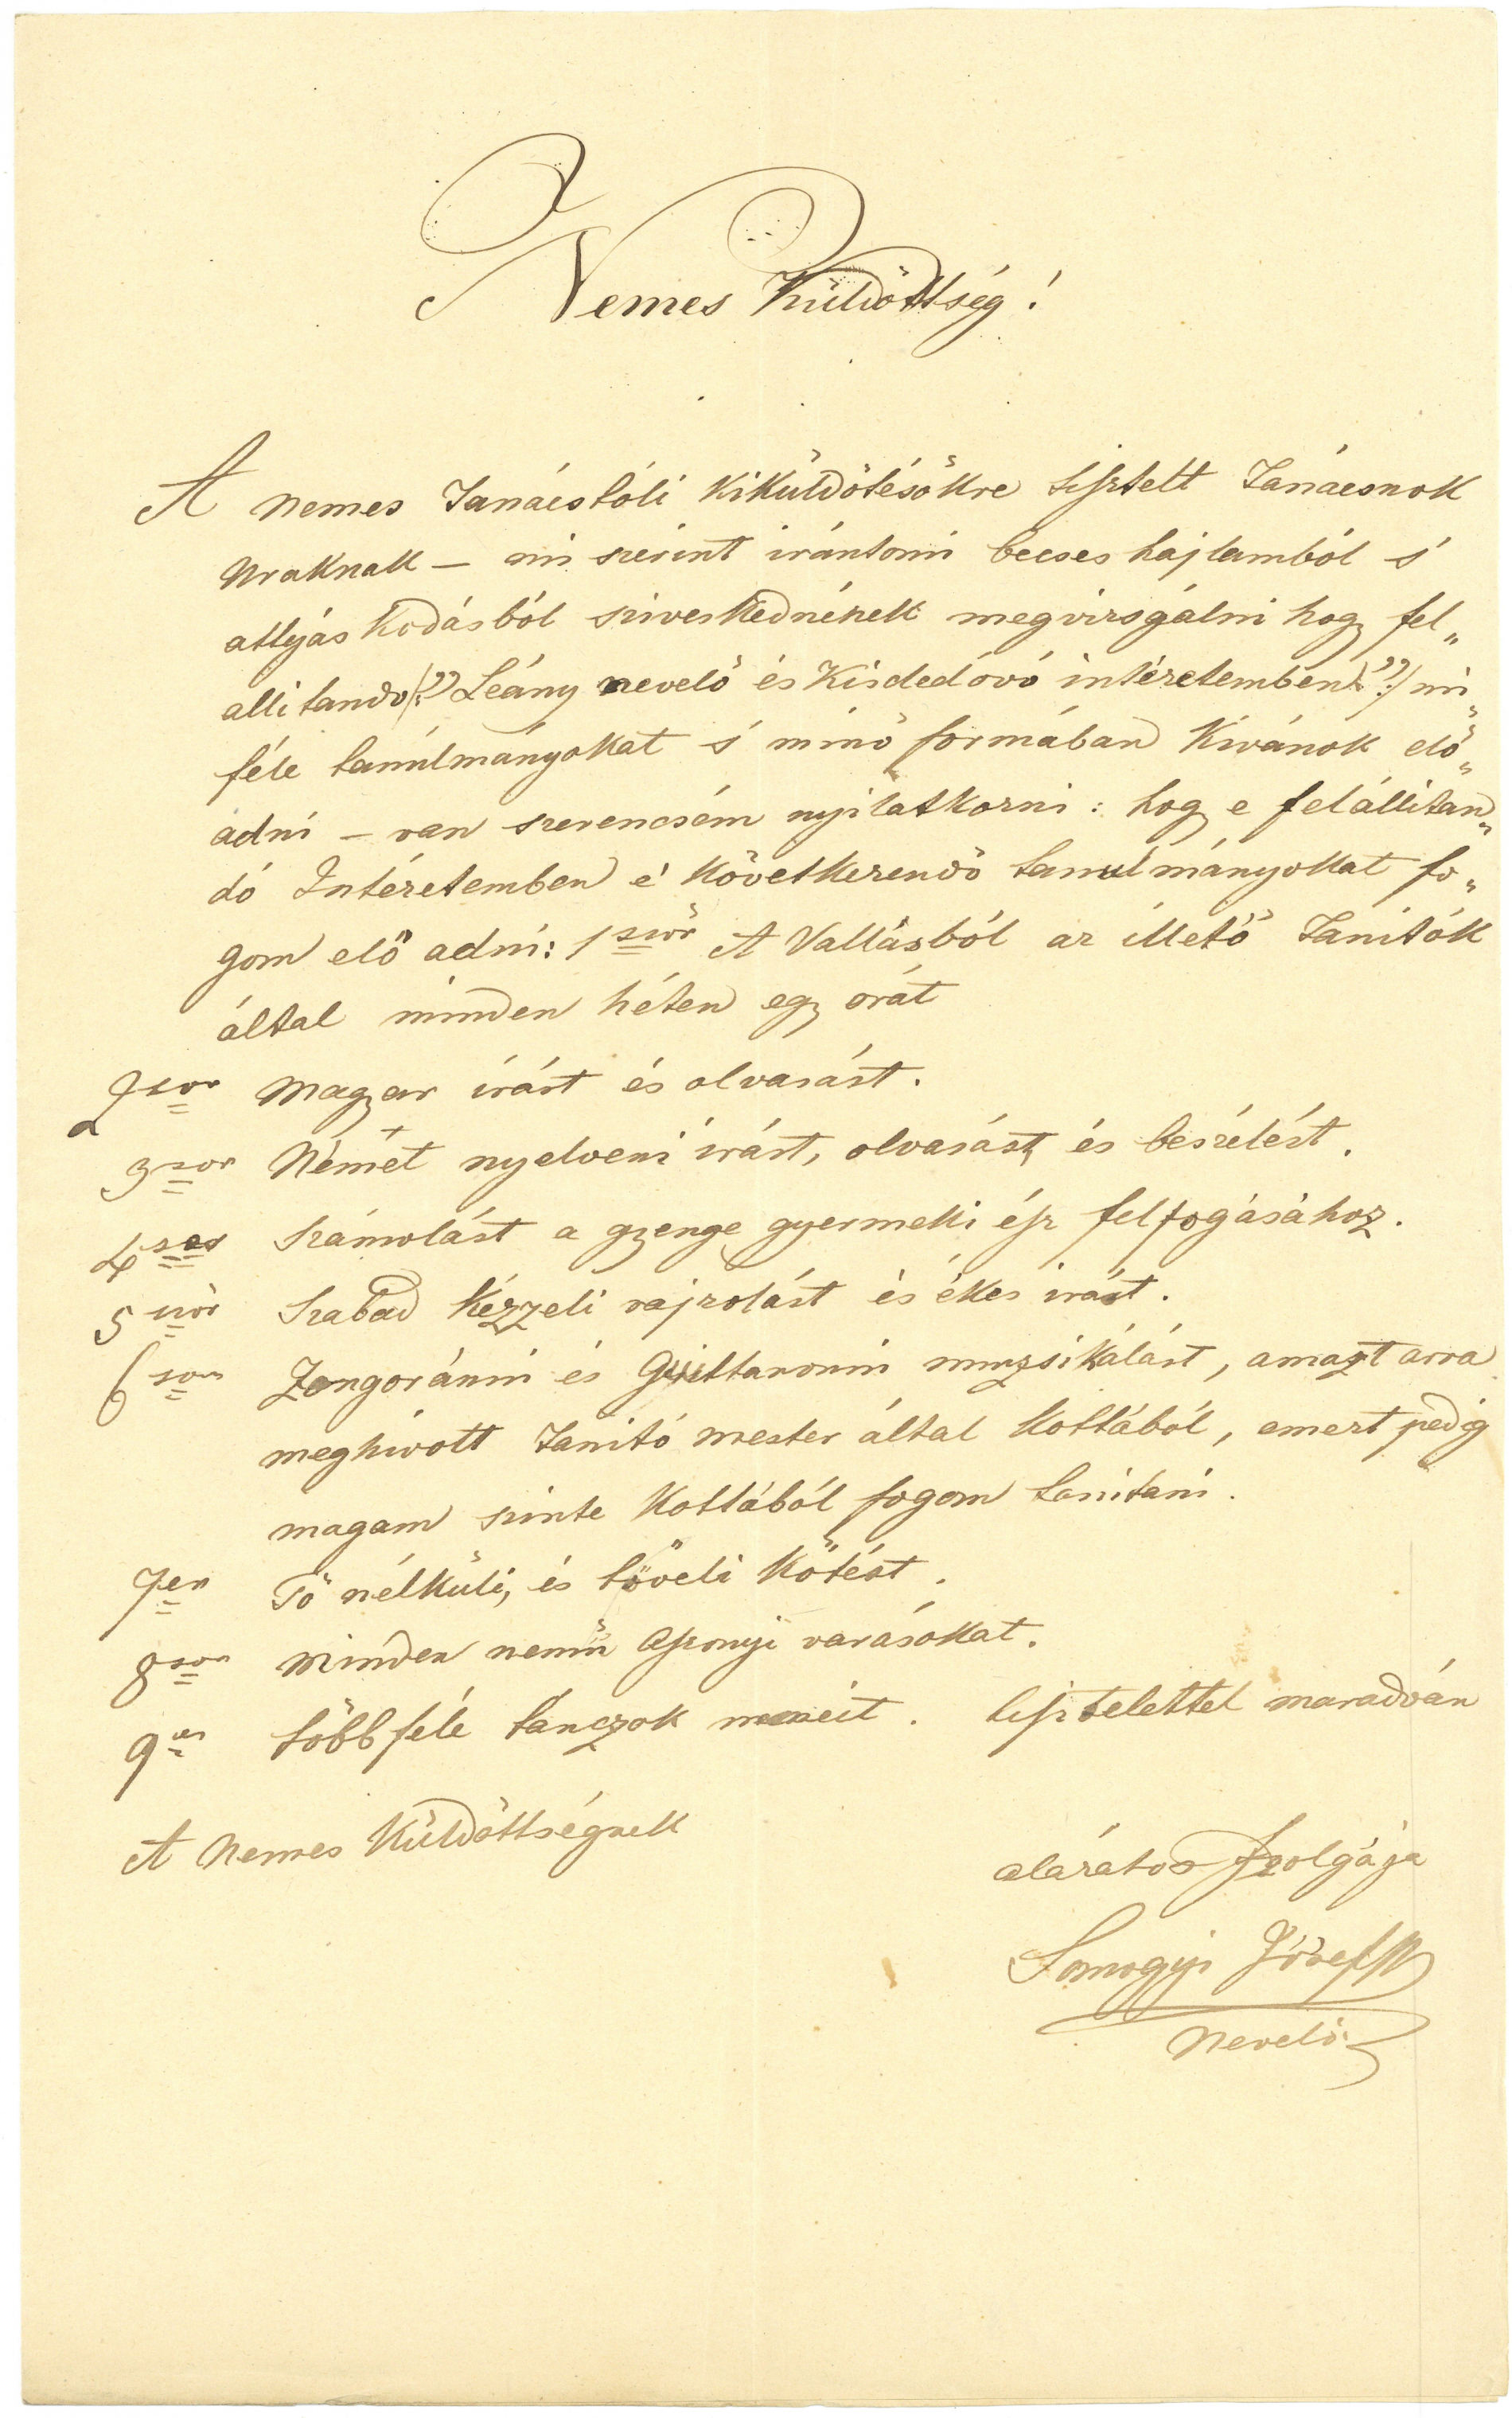 Nemes Küldöttség!
A nemes Tanácstóli kiküldötésökre tisztelt Tanácsnok
uraknak – mi szerint irántomi becses hajlamból s'
attyáskodásból sziveskednének megvizsgálni hogy fel„
allitando /:„ Leány nevelö és Kisdedóvó intézetemben":/ mi„
féle tanúlmányokat s' minö formában kivánok elö„
adni – van szerencsém nyilatkozni: hogy e felállitan„
dó Intézetemben e' következendö tanulmányokat fo„
gom elö adni: 1ször A Vallásból az illetö Tanitók
által minden héten egy orát
2szor Magyar irást és olvasást.
3szor Német nyelveni irást, olvasást, és beszélést.
4szer Számolást a gyenge gyermeki ész felfogásához.
5ször Szabad kézzeli rajzolást és ékes irást.
6szor Zongoránni és Guittaronni muzsikálást, amazt arra
meghivott Tanitó mester által kottából, emezt pedig
magam szinte kottából fogom tanitani.
7er Tö nélküli, és töveli kötést.
8szor minden nemü aszonyi varásokat.
9er többféle tanczok nemeit. tisztelettel maradván
A Nemes Küldöttségnek
alázatos szolgája
Somogyi József
Nevelö